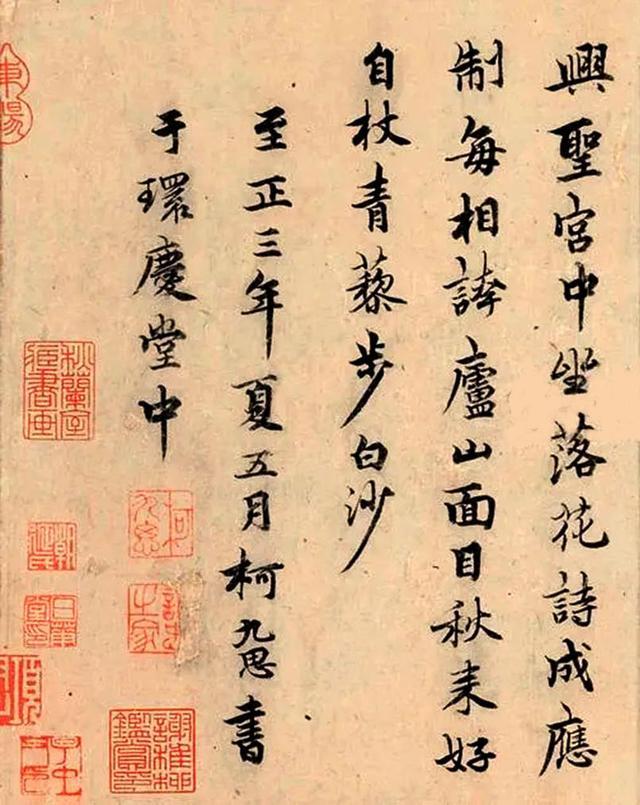 興聖宮中坐落花詩成應
制每相誇廬山面目秋来好
自杖青藜步白沙
至正三年夏五月柯九思書
于環慶堂中
柯九思